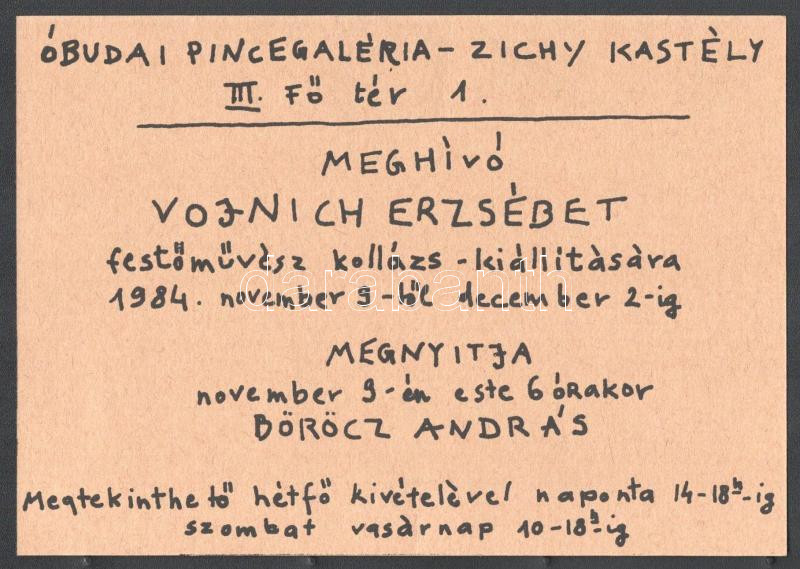 ÓBUDAI PINCEGALÉRIA - ZICHY KASTÈLY
III. Fő tér 1.
MEGHÌVÓ
VOJNICH ERZSÉBET
festőművèsz kollàzs - kiállitàsàra
1984. november 9-től december 2-ig
MEGNYITJA
november 9-én este 6 órakor
BÖRÖCZ ANDRÁS
Megtekinthető hétfő kivételèvel naponta 14-18h-ig
szombat vasàrnap 10-18h-ig
darabanth